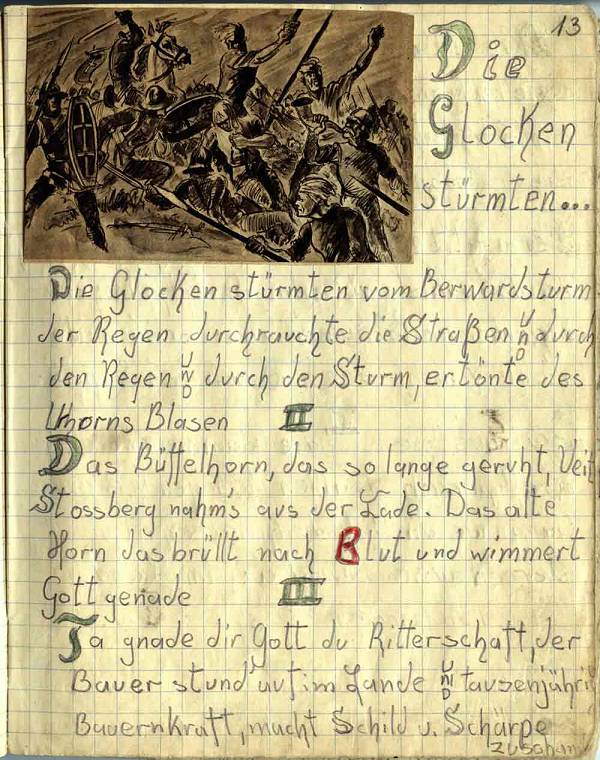 13
Die
Glocken
stürmten...
Die Glocken stürmten vom Berwardsturm
der Regen durchrauchte die Straßen UND durch
den Regen UND durch den Sturm, ertönte des
Uhorns Blasen II
Das Büffelhorn, das so lange geruht, Veit
Stossberg nahm's aus der Lade. Das alte
Horn das brüllt nach Blut und wimmert
Gott genade III
Ja gnade dir Gott du Ritterschaft, der
Bauer stund auf im Lande UND tausenjähri
Bauernkraft, macht Schild u. Schärpe